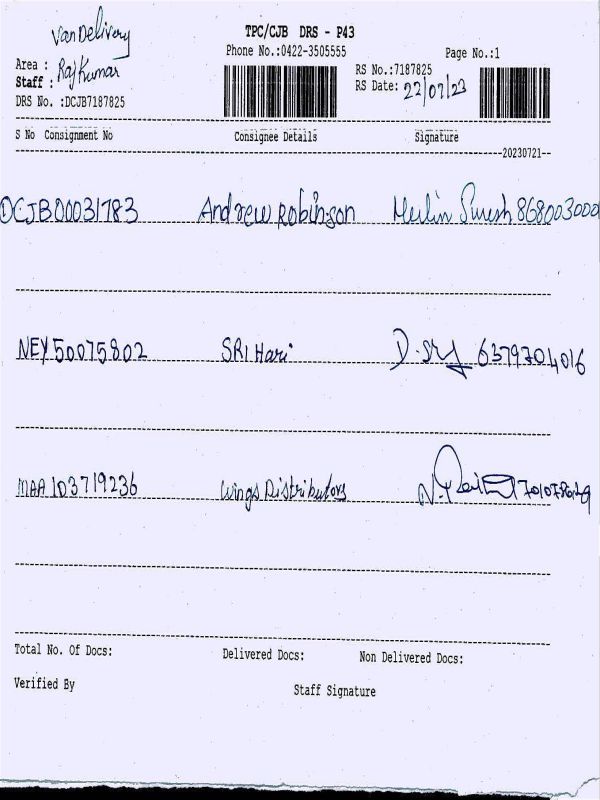 Van Delivery
TPC/CJB DRS - P43
Phone No.:0422-3505555
Page No.:1
Area :
Staff : Raj Kumar
RS No.:7187825
RS Date: 22/07/23
DRS No. :DCJB7187825
S No Consignment No Consignee Details Signature
20230721
DCJB00031783 Andrew Robinson
NEY50075802 SRI Hari 6379704016
MAA103719236 Wings Distributors
Total No. Of Docs: Delivered Docs: Non Delivered Docs:
Verified By Staff Signature